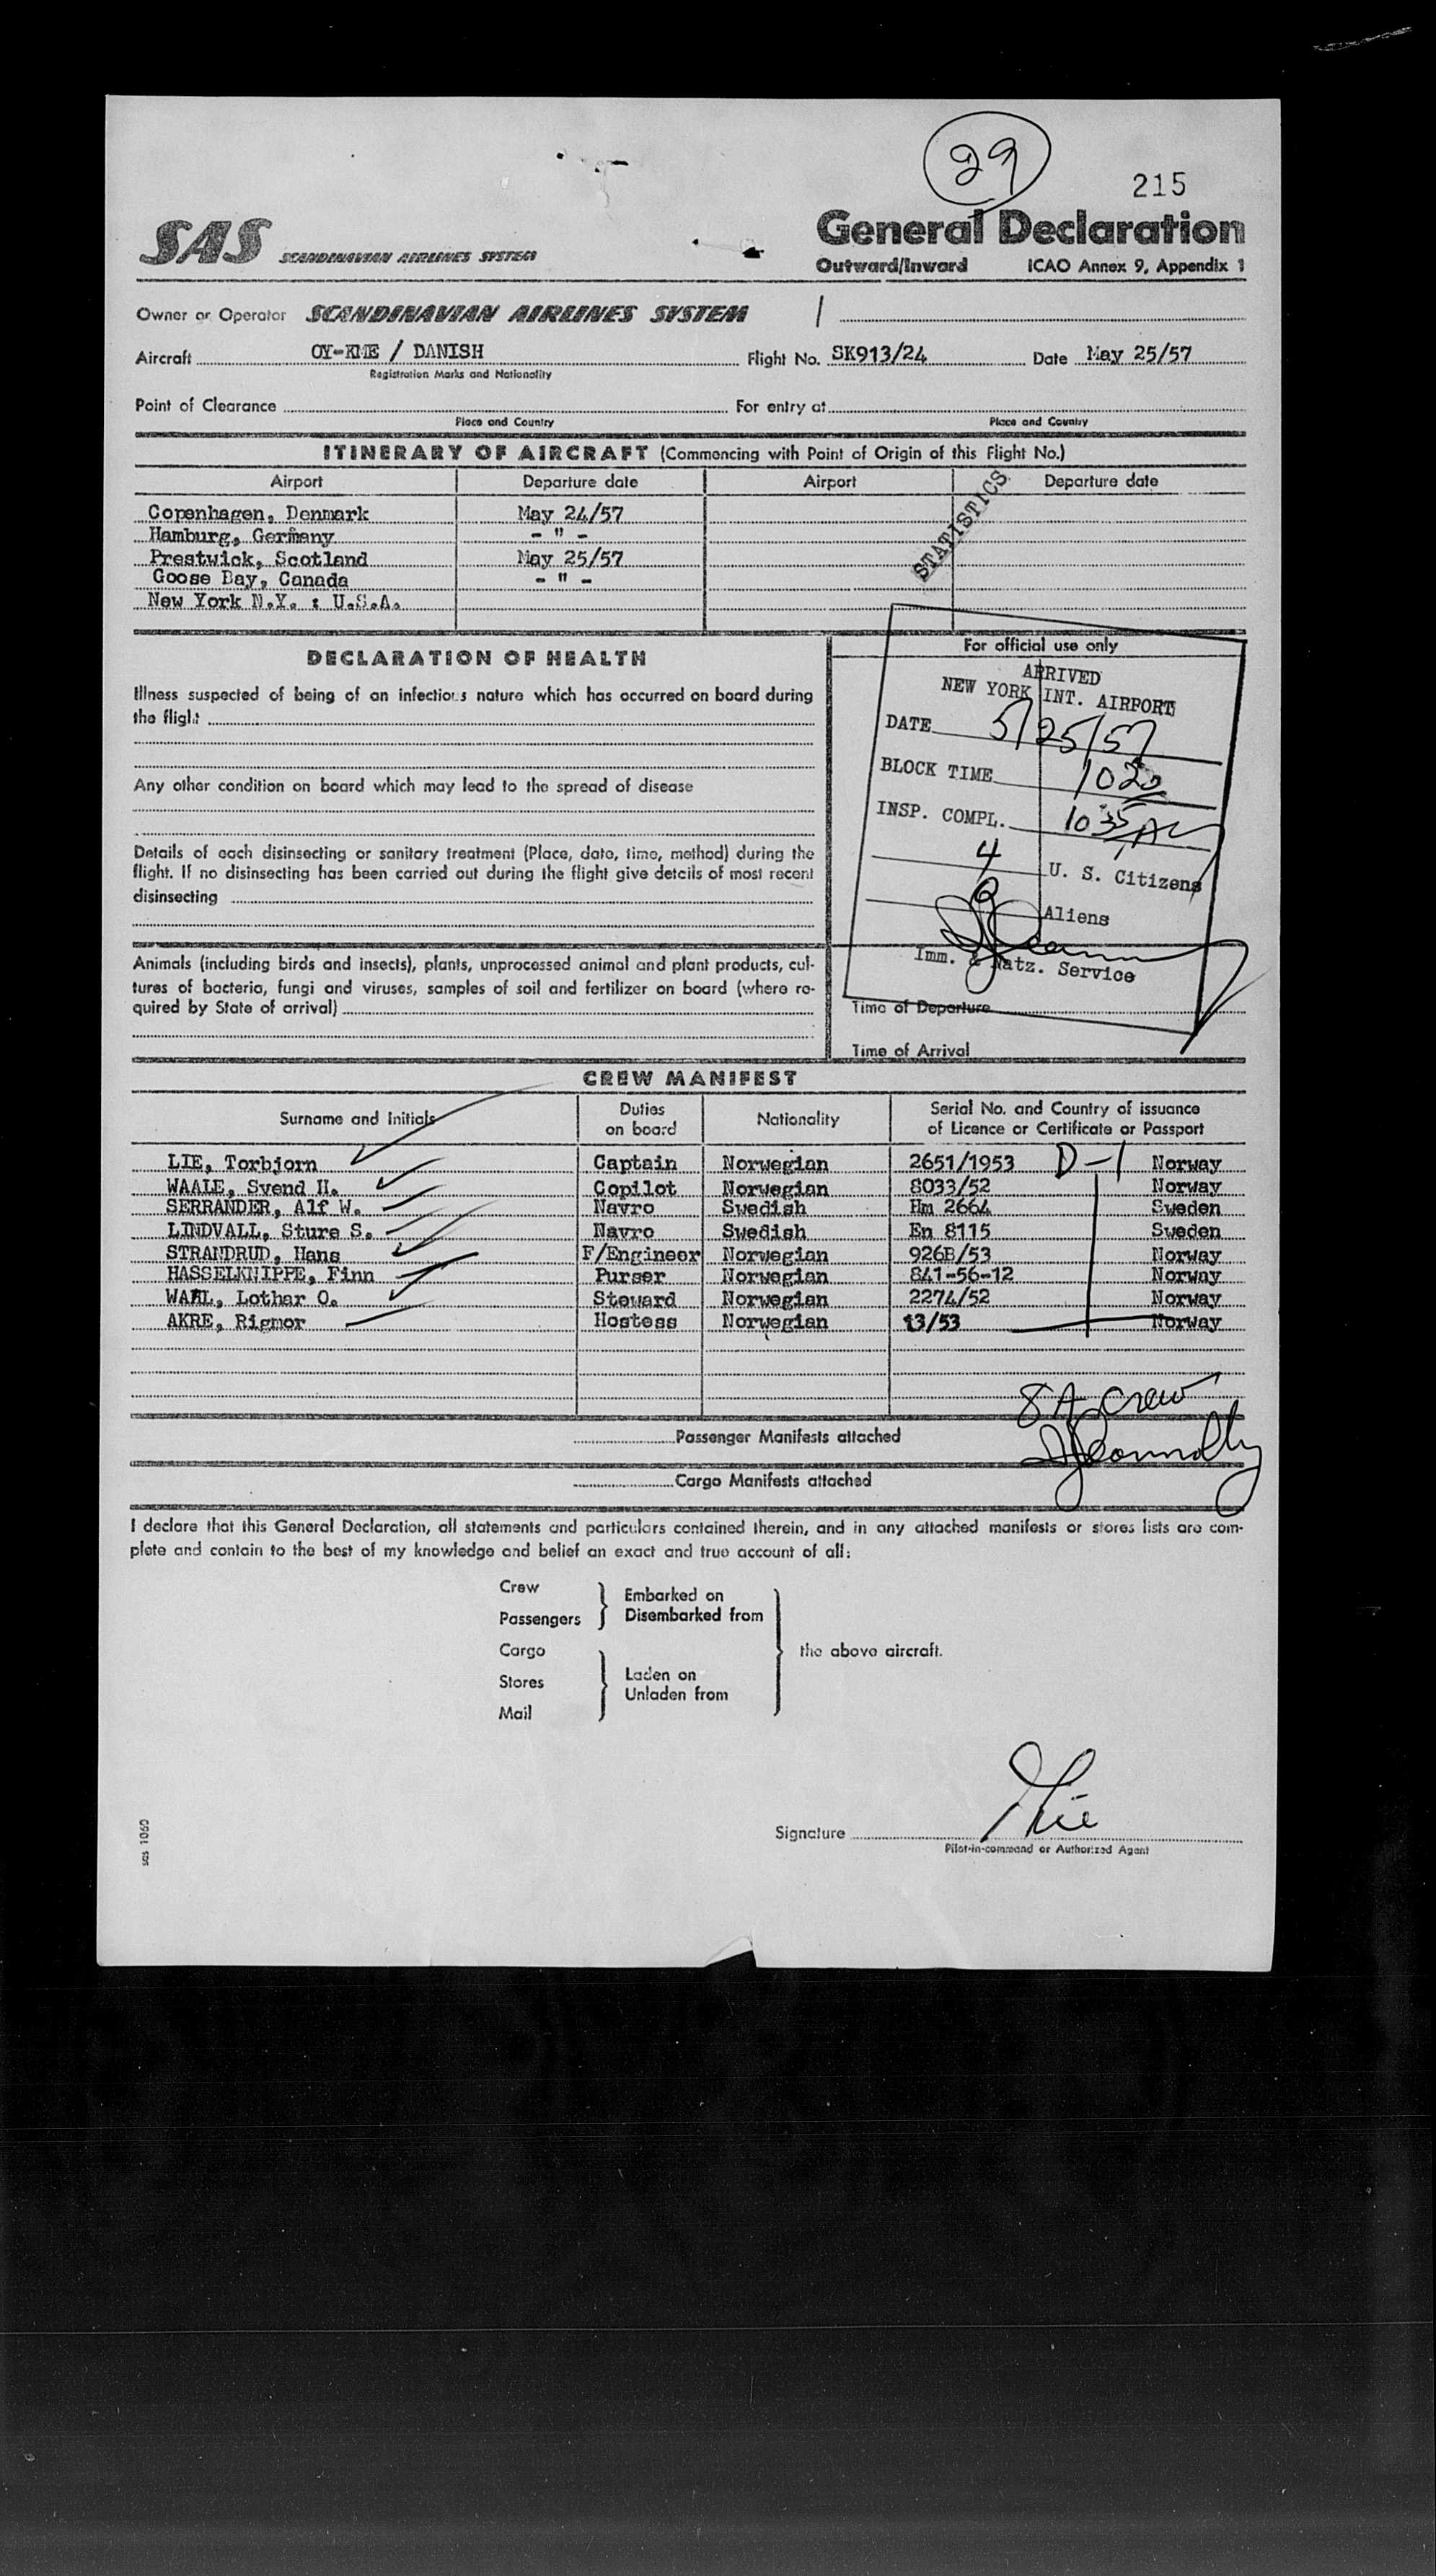 29
215
SAS SCANDINAVIAN AIRLINES SYSTEM
General Declaration
Outward/Inward ICAO Annex 9, Appendix 1
Owner or Operator SCANDINAVIAN AIRLINES SYSTEM
Aircraft OY-KME / DANISH Flight No. SK913/24 Date May 25/57
Registration Marks and Nationality
Point of Clearance For entry at
Place and Country Place and Country
ITINERARY OF AIRCRAFT (Commencing with Point of Origin of this Flight No.)
Airport Departure date Airport Departure date
STATISTICS
Copenhagen, Denmark May 24/57
Hamburg, Germany - " -
Prestwick, Scotland May 25/57
Goose Bay, Canada - " -
New York N.Y. : U.S.A.
DECLARATION OF HEALTH
Illness suspected of being of an infectious nature which has occurred on board during
the flight
Any other condition on board which may lead to the spread of disease
Details of each disinsecting or sanitary treatment (Place, date, time, method) during the
flight. If no disinsecting has been carried out during the flight give details of most recent
disinsecting
Animals (including birds and insects), plants, unprocessed animal and plant products, cul-
tures of bacteria, fungi and viruses, samples of soil and fertilizer on board (where re-
quired by State of arrival)
For official use only
ARRIVED
NEW YORK INT. AIRPORT
DATE 5/25/57
BLOCK TIME 1020
INSP. COMPL. 1035
4 U. S. Citizens
Aliens
Imm. & Natz. Service
Time of Departure
Time of Arrival
CREW MANIFEST
Surname and Initials Duties on board Nationality Serial No. and Country of issuance of Licence or Certificate or Passport
LIE, Torbjorn Captain Norwegian 2651/1953 D-1 Norway
WAALE, Svend H. Copilot Norwegian 8033/52 Norway
SERRANDER, Alf W. Navro Swedish Hm 2664 Sweden
LINDVALL, Sture S. Navro Swedish En 8115 Sweden
STRANDRUD, Hans F/Engineer Norwegian 926B/53 Norway
HASSELKNIPPE, Finn Purser Norwegian 841-56-12 Norway
WAHL, Lothar O. Steward Norwegian 2274/52 Norway
AKRE, Rigmor Hostess Norwegian 13/53 Norway
8 A Crew
Passenger Manifests attached
Cargo Manifests attached
I declare that this General Declaration, all statements and particulars contained therein, and in any attached manifests or stores lists are com-
plete and contain to the best of my knowledge and belief an exact and true account of all:
Crew
Passengers
Embarked on
Disembarked from
Cargo
Stores
Mail
Laden on
Unladen from
the above aircraft.
Signature
Pilot-in-command or Authorized Agent
sas 1060